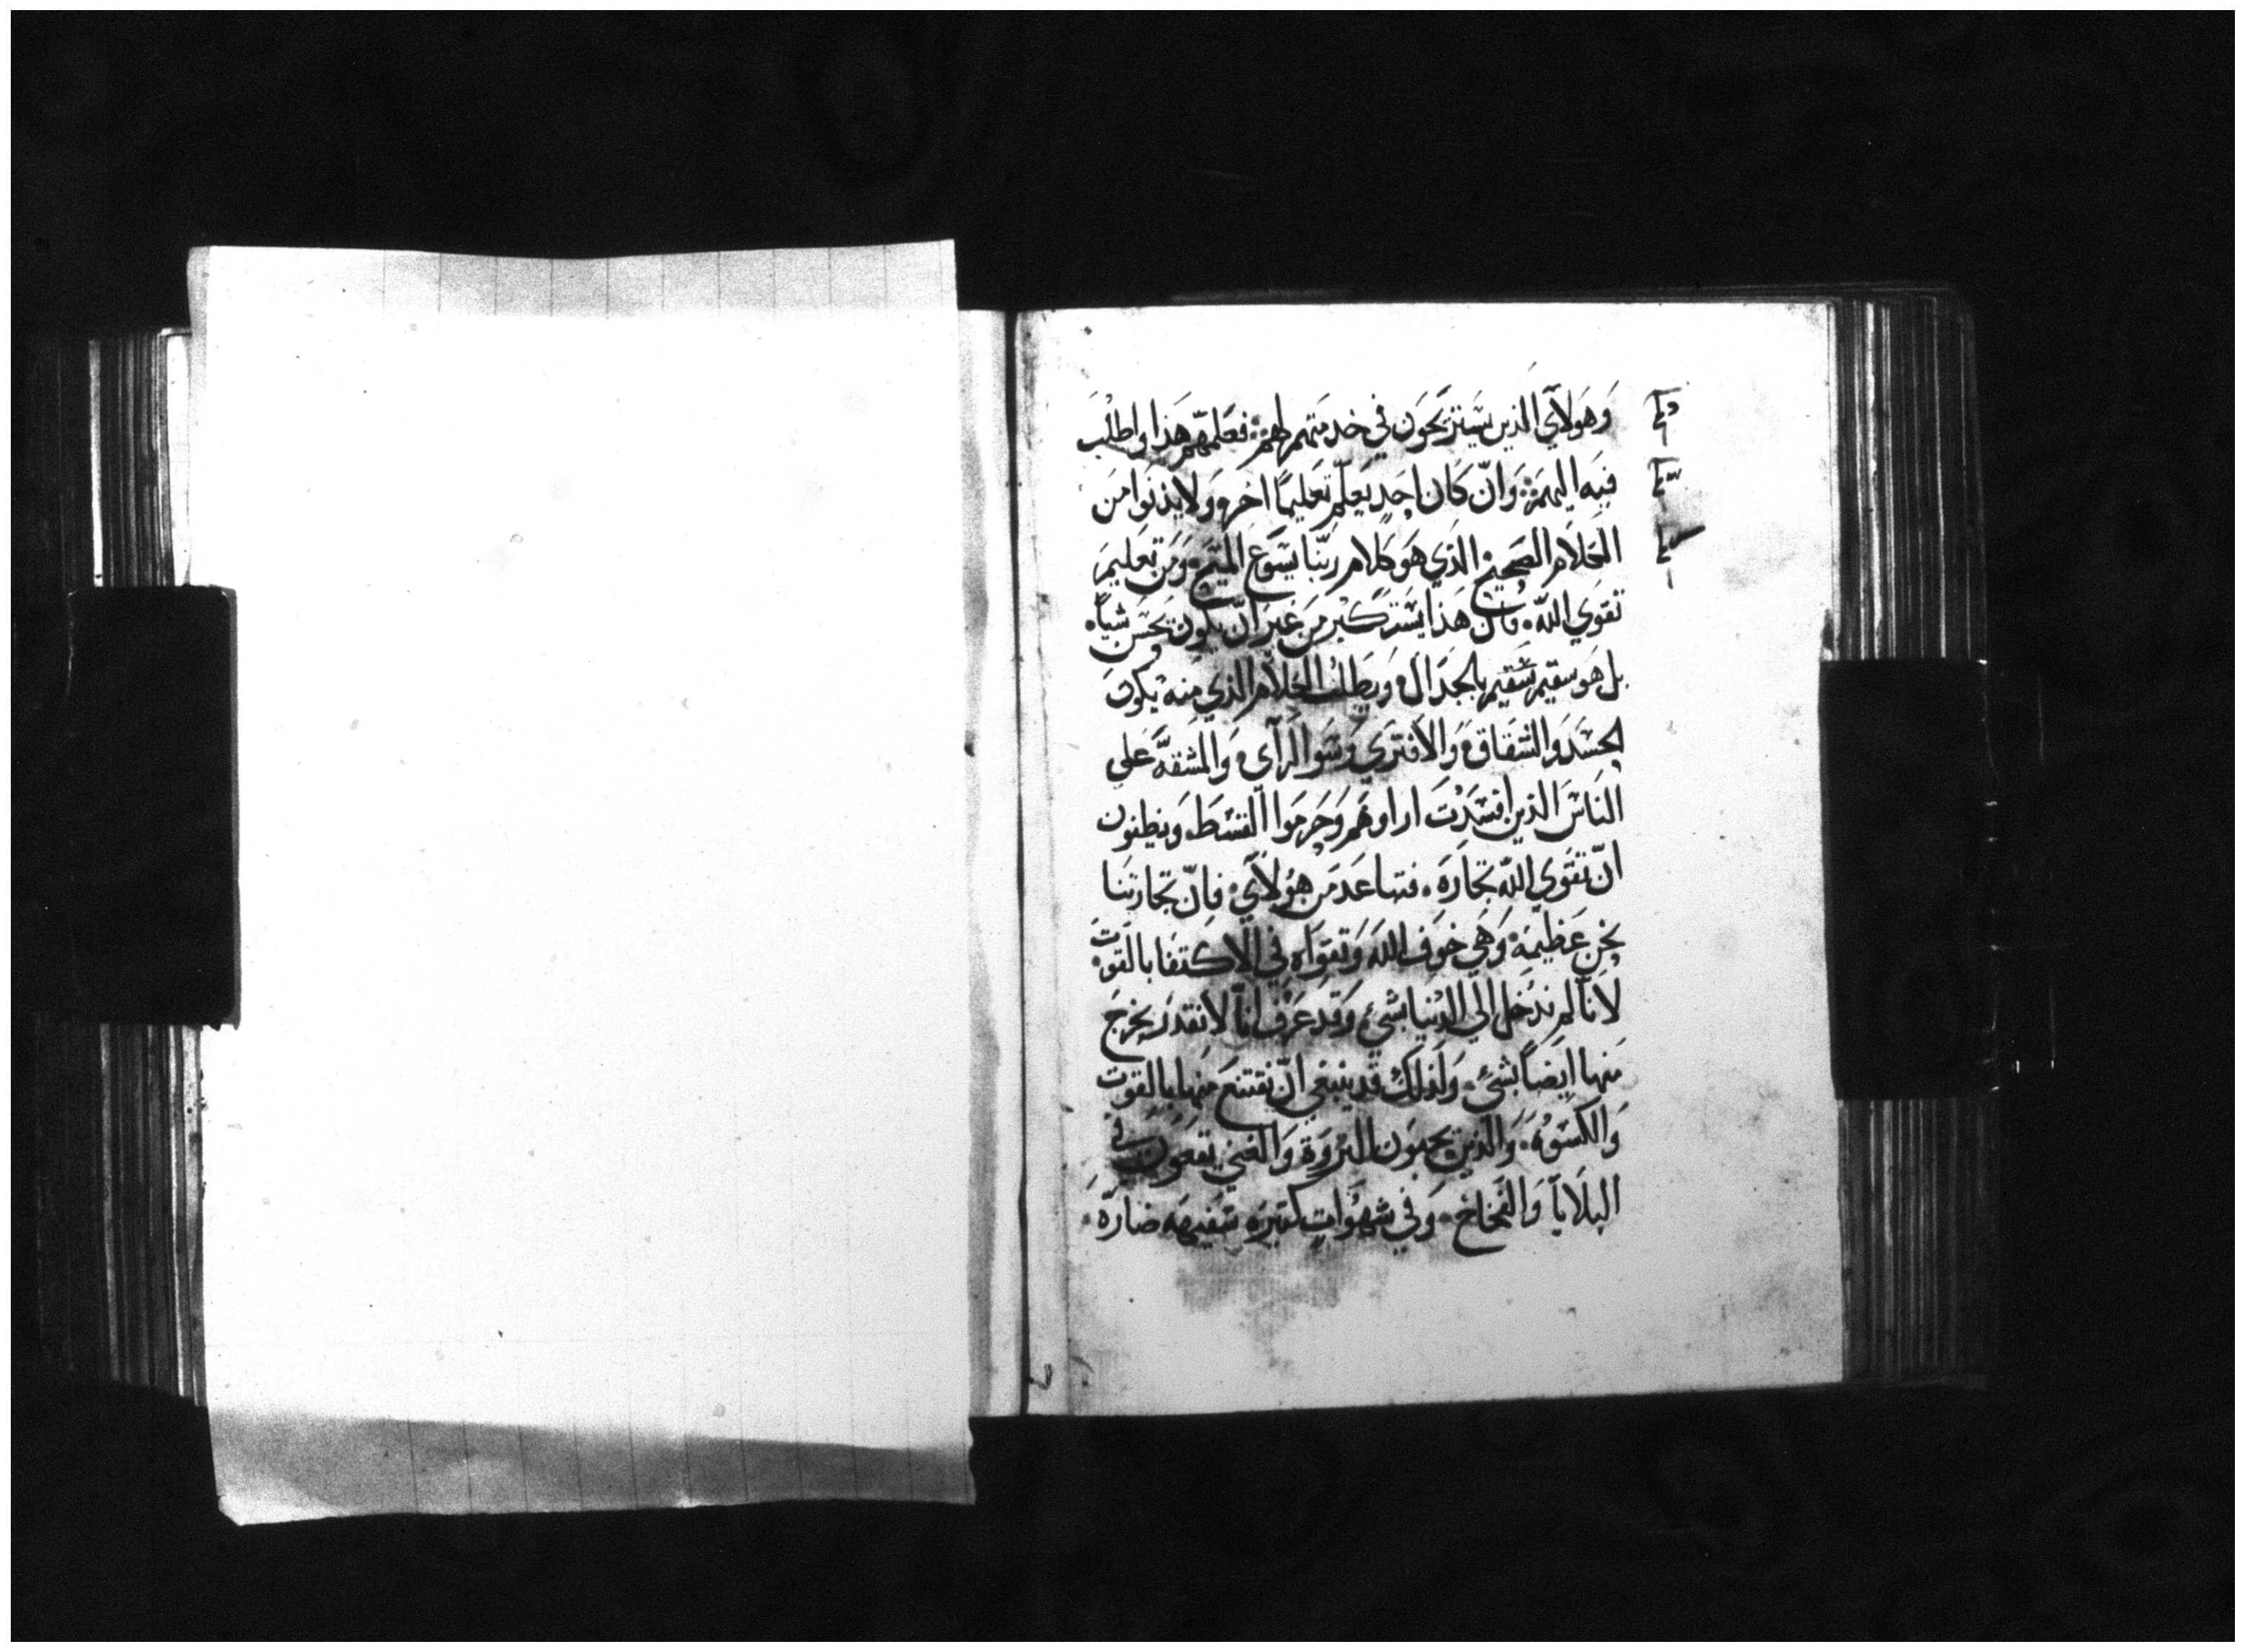 وَهَوَلآي الذين يسَتزيَحُوَن في خدمَتهم لهَم: فعَلمّهم هَذا واطلبَ
فيَه اليهمَ: وَانّ كَان احِد يَعَلّم تعَليمًا اخر، وَلا يدنوَا مَن
الكَلامَ الصَحيح: الذَي هوَ كَلام ربّنا يَسَوَع المَسَيح: وَمَن تعَليمَ
تقوَي اللّه. فان هَذا يسَتكبر مَن غيَر انّ يكون يحَسَن شياً.
بل هوَ سَقيم سَقيم بالجدَال، وَيطلب الكلامَ الذي مَنه يكون
الحسَدَ وَالشقاق، وَالافتري، وَسَوا الرآي، وَالمشقهّ عَلي
الناسَ الذين افسَدَت اراوهَم وَحرموَا القسَط، وَيظنون
انّ تقوَي اللّه تجاَرَه. فتباعَد مَن هوُلآي، فانّ تجارتنا
نحن عَظيمَه، وَهَي خوَف اللّه وَتقوَاه في الاكتفا بالقوَت،
لاَناّ لم ندَخل الي الدنيا بشي، وَقد عَرف اناّ لا نقدر نخرجَ
مَنها ايضَاً بشي. وَلذلك قد ينبغي انّ نقتنعَ مَنها بالقوَت
وَالكسَوه. وَالذين يحبوَن الثروَة وَالغني يقعَون في
البلايا وَالفخاخ. وَفي شهوَات كثيره سَفيهَه ضارّه.